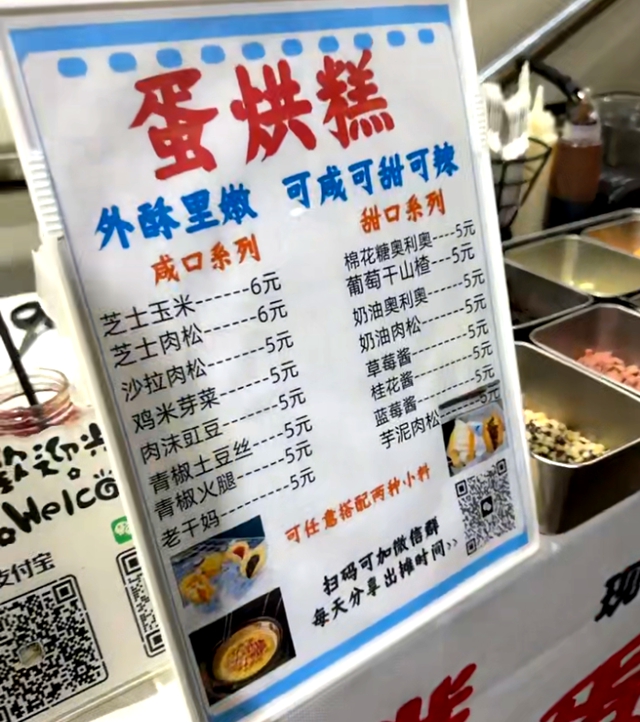 蛋烘糕
外酥里嫩 可咸可甜可辣
咸口系列
芝士玉米------6元
芝士肉松------6元
沙拉肉松------5元
鸡米芽菜------5元
肉沫豇豆------5元
青椒土豆丝----5元
青椒火腿------5元
老干妈--------5元
甜口系列
棉花糖奥利奥----5元
葡萄干山楂---5元
奶油奥利奥------5元
奶油肉松--------5元
草莓酱----------5元
桂花酱----------5元
蓝莓酱----------5元
芋泥肉松--------5元
可任意搭配两种小料
扫码可加微信群
每天分享出摊时间>>
欢迎光
Welco
支付宝
现